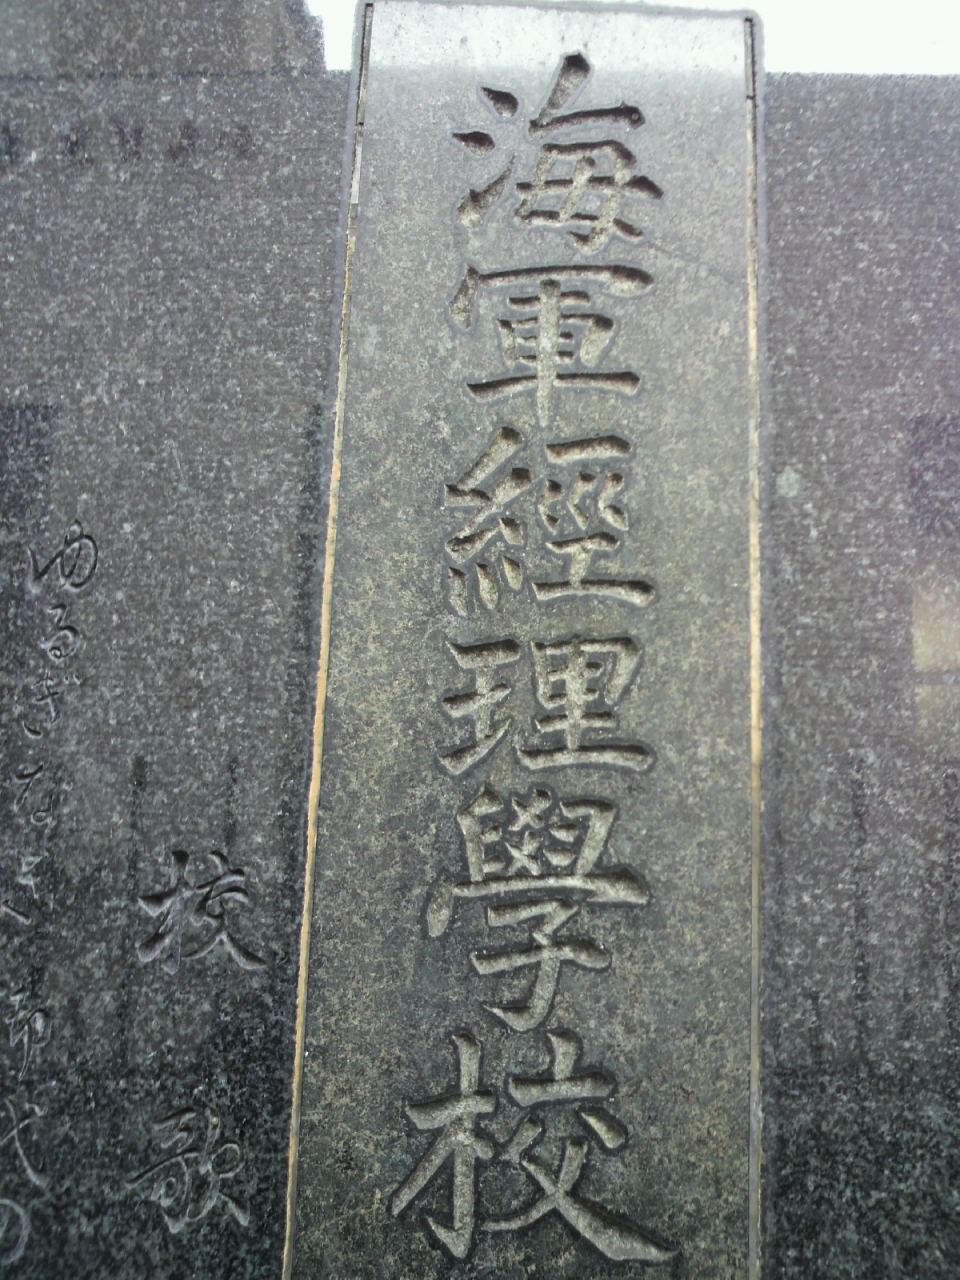 海軍經理學校
校歌
ゆるぎなき